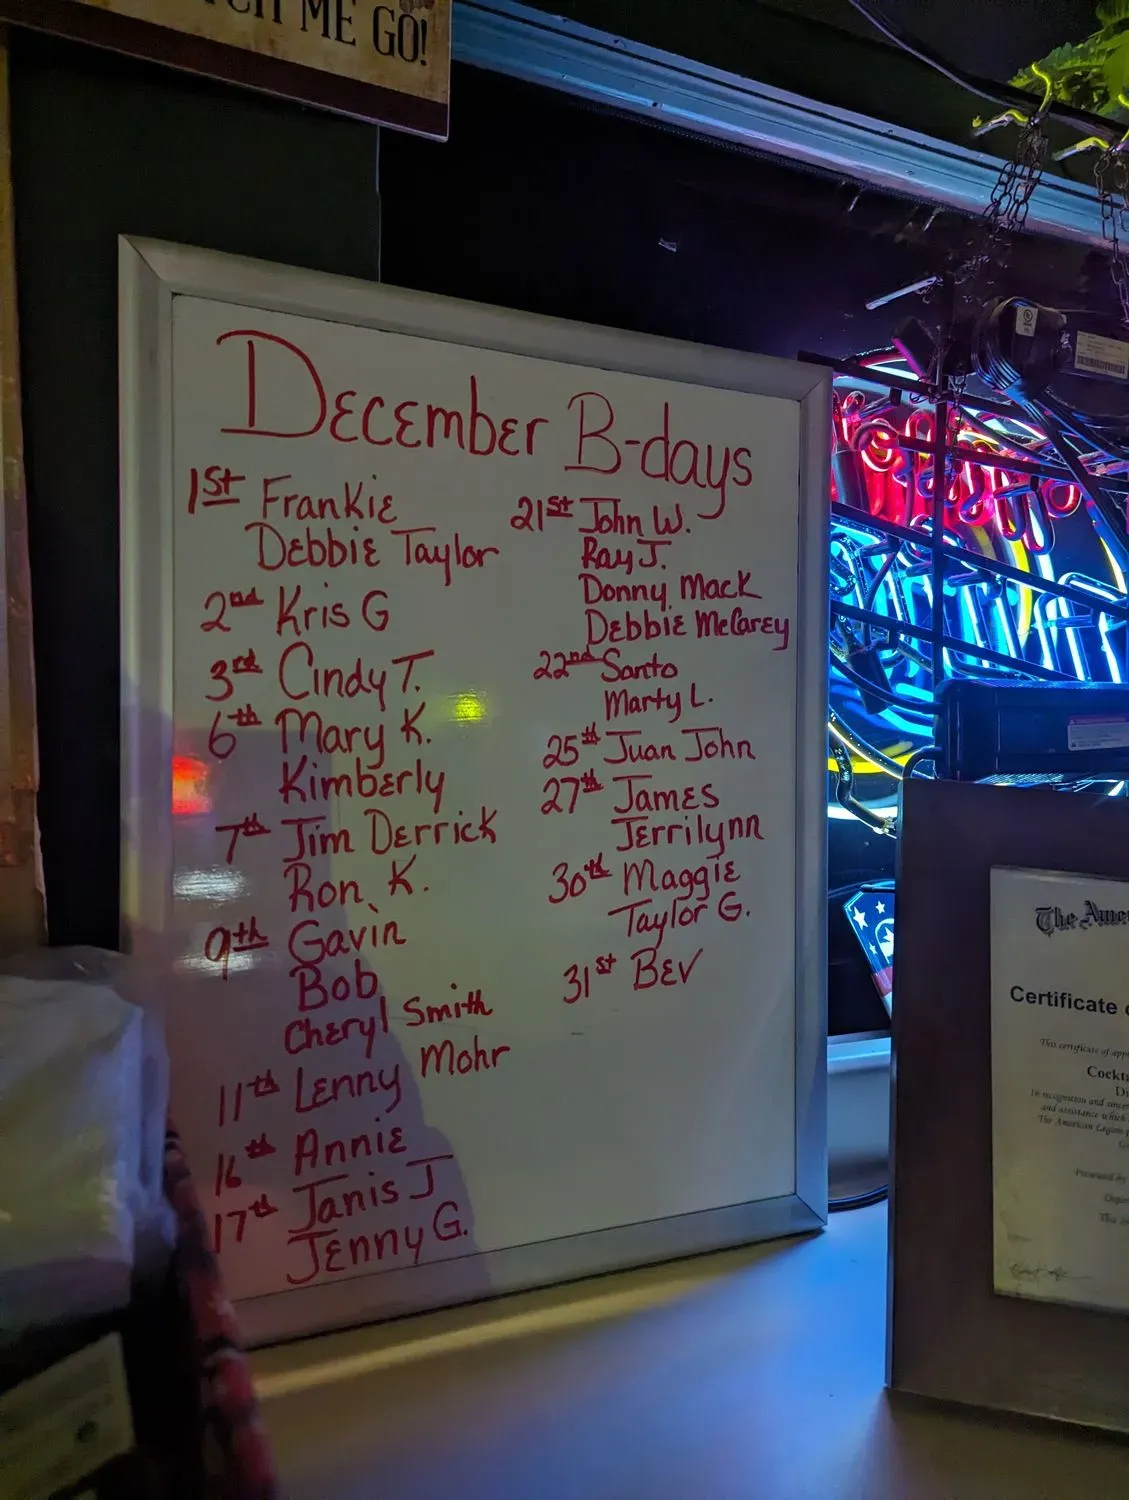 ME GO!
December B-days
1st Frankie
Debbie Taylor
2nd Kris G
3rd Cindy T.
6th Mary K.
Kimberly
7th Jim Derrick
Ron K.
9th Gavin
Bob
Cheryl Smith
Mohr
11th Lenny
16th Annie
17th Janis J
Jenny G.
21st John W.
Ray J.
Donny Mack
Debbie McCarey
22nd Santo
Marty L.
25th Juan John
27th James
Jerrilynn
30th Maggie
Taylor G.
31st Bev
The
Certificate
This certificate of
In recognition and
and assistance which
The American Legion
Presented by